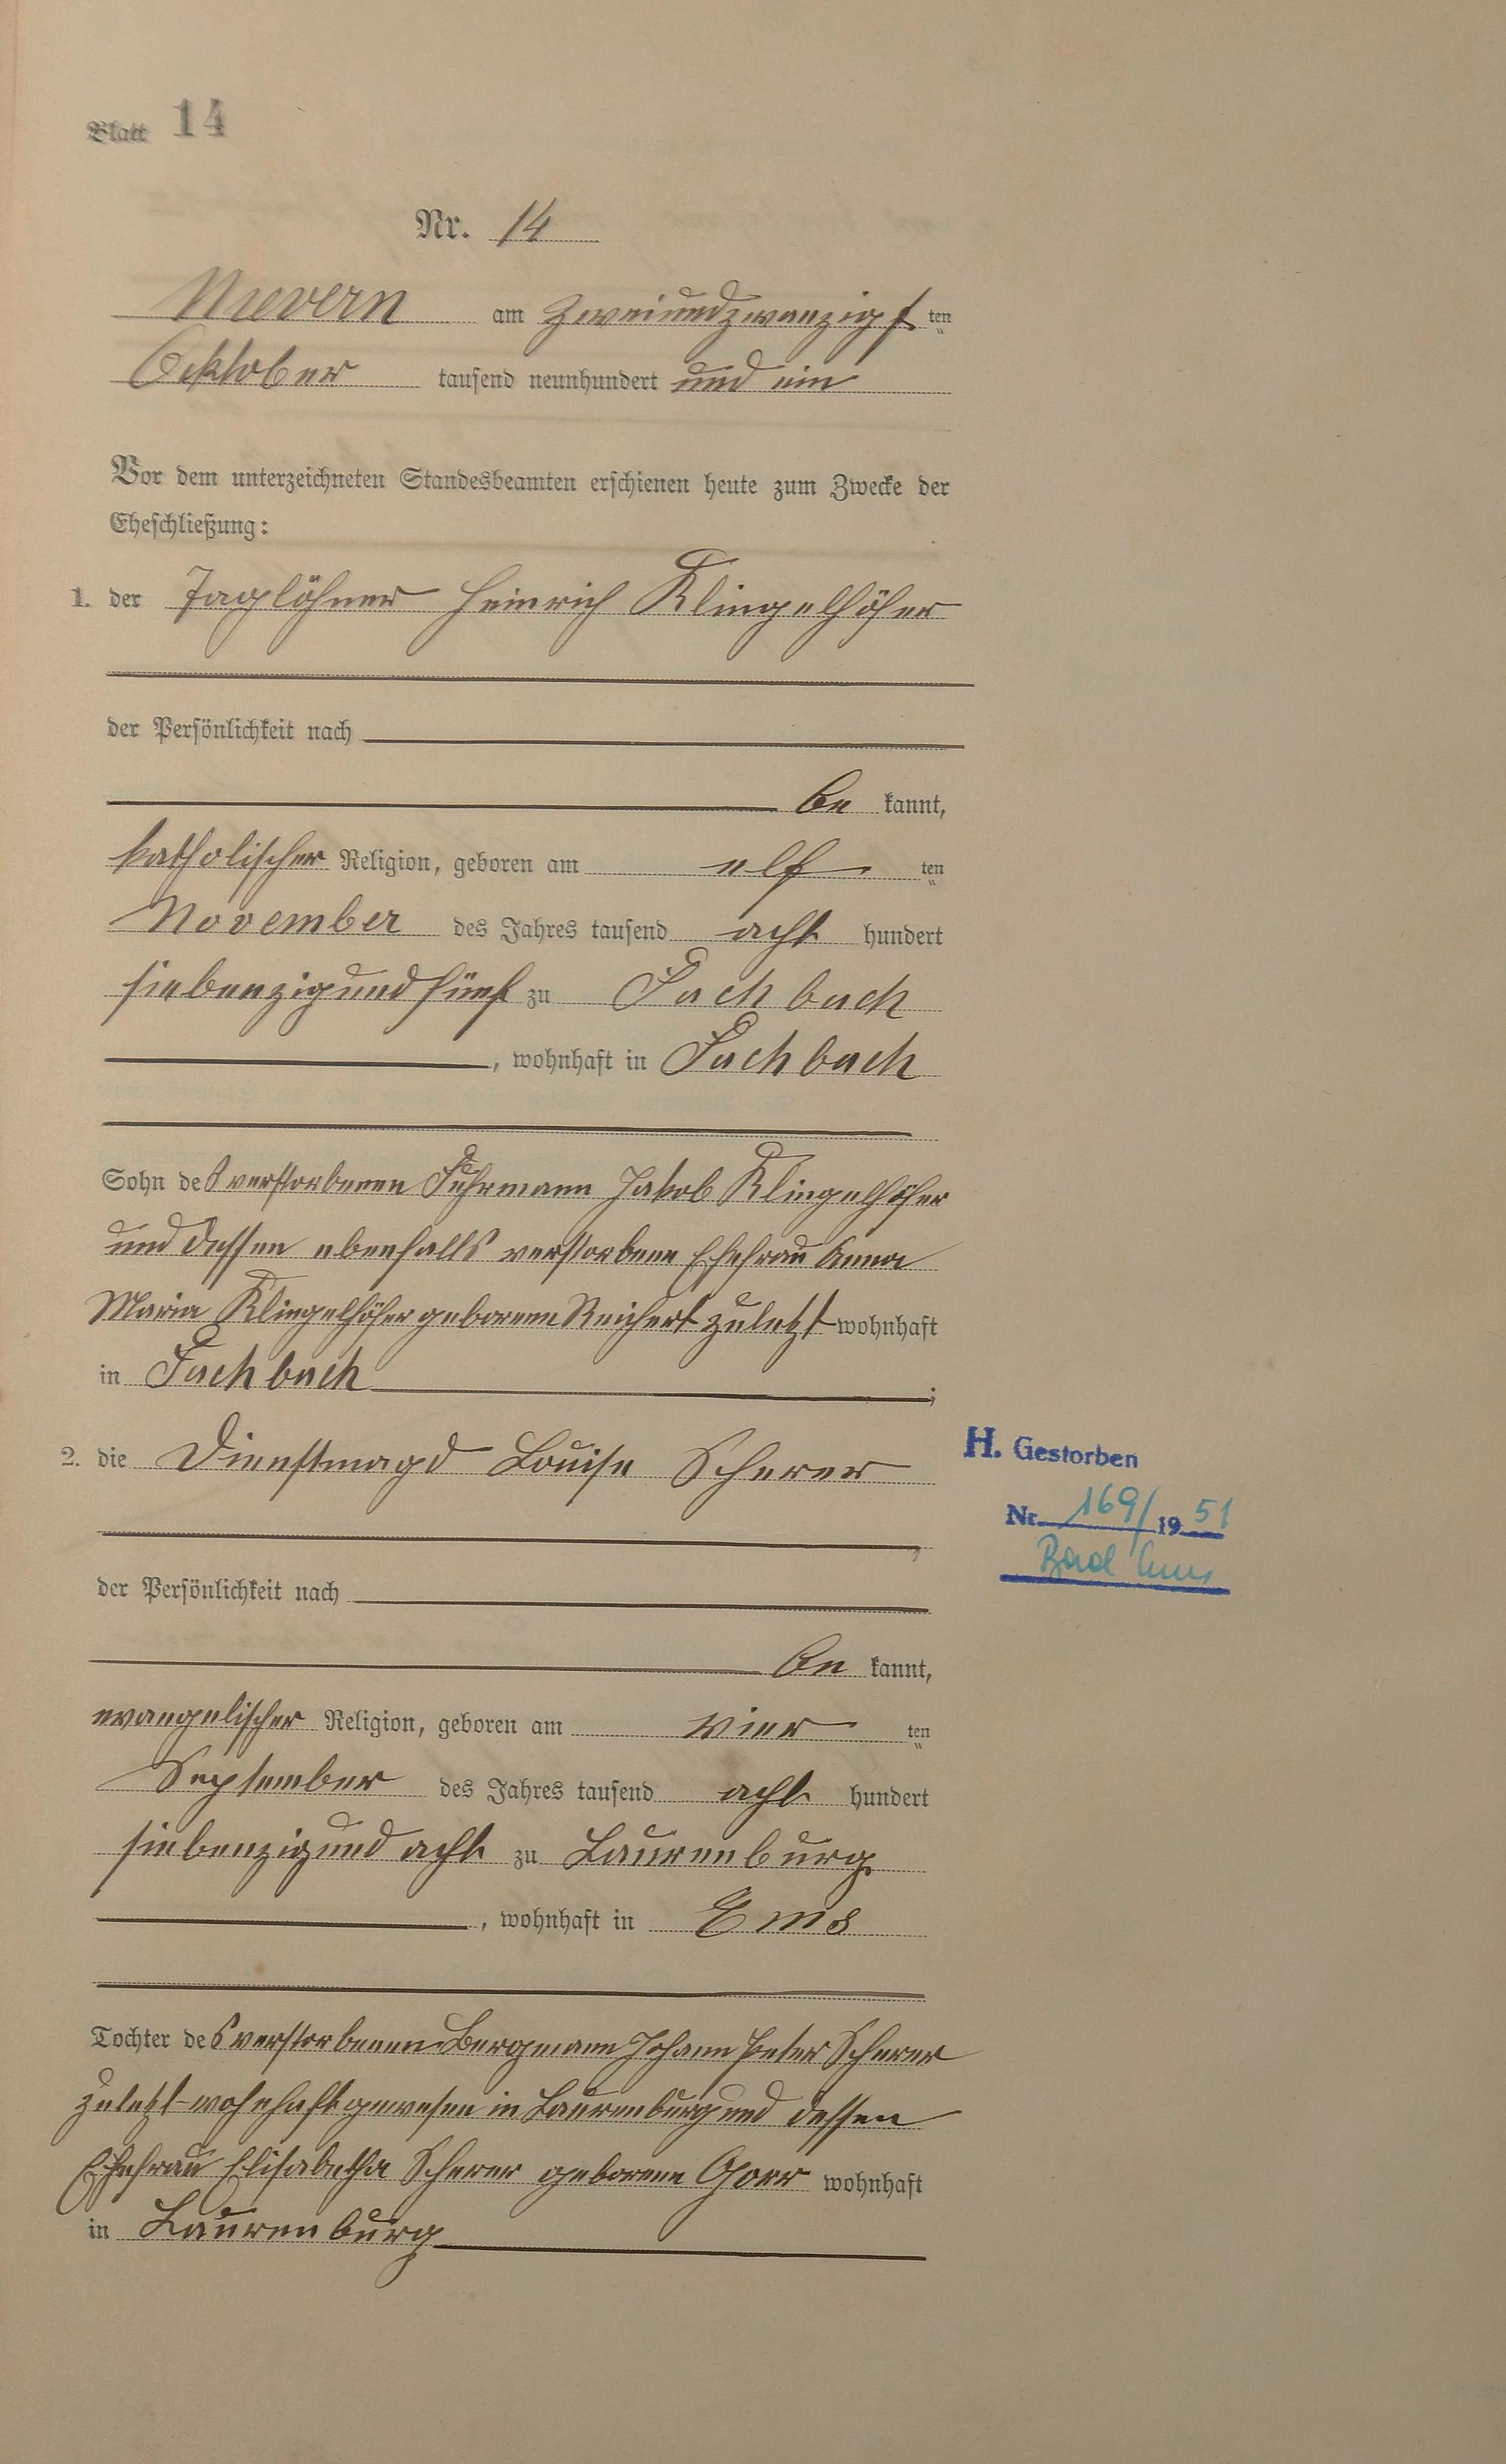 Blatt 14
Nr. 14
Nievern am zweiundzwanzigsten
Oktober tausend neunhundert und ein
Vor dem unterzeichneten Standesbeamten erschienen heute zum Zwecke der
Eheschließung:
1. der Taglöhner Heinrich Klingelhöfer
der Persönlichkeit nach
be kannt,
katholischer Religion, geboren am elf ten
November des Jahres tausend acht hundert
siebenzigundfünf zu Fachbach
, wohnhaft in Fachbach
Sohn des verstorbenen Fuhrmann Jakob Klingelhöfer
und dessen ebenfalls verstorbene Ehefrau Anna
Maria Klingelhöfer geborene Reichert zuletzt wohnhaft
in Fachbach ;
2. die Dienstmagd Louise Scherer
H. Gestorben
Nr. 169/1951
Bad Ems
der Persönlichkeit nach
be kannt,
evangelischer Religion, geboren am vier ten
September des Jahres tausend acht hundert
siebenzigundacht zu Laurenburg
, wohnhaft in Ems
Tochter des verstorbenen Bergmann Johann Peter Scherer
zuletzt wohnhaft gewesen in Laurenburg und dessen
Ehefrau Elisabetha Scherer geborene Gorr wohnhaft
in Laurenburg